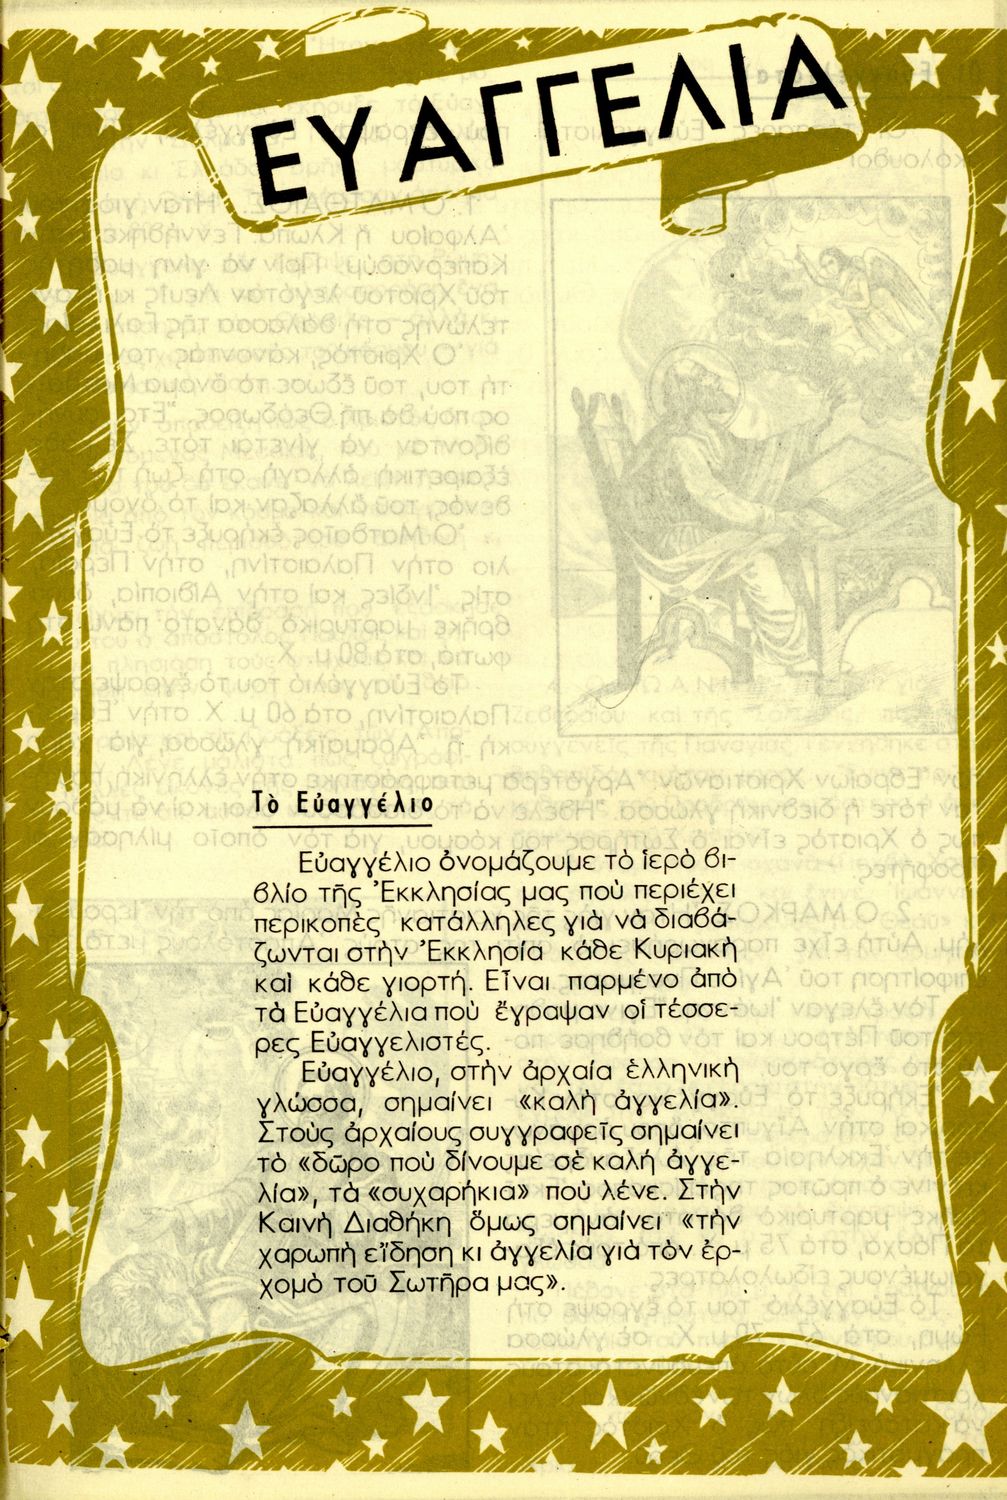 ΕΥΑΓΓΕΛΙΑ
Τὸ Εὐαγγέλιο
Εὐαγγέλιο ὀνομάζουμε τὸ ἱερὸ βι-
βλίο τῆς Ἐκκλησίας μας ποὺ περιέχει
περικοπὲς κατάλληλες γιὰ νὰ διαβά-
ζωνται στὴν Ἐκκλησία κάθε Κυριακὴ
καὶ κάθε γιορτή. Εἶναι παρμένο ἀπὸ
τὰ Εὐαγγέλια ποὺ ἔγραψαν οἱ τέσσε-
ρες Εὐαγγελιστές.
Εὐαγγέλιο, στὴν ἀρχαία ἑλληνικὴ
γλώσσα, σημαίνει «καλὴ ἀγγελία».
Στοὺς ἀρχαίους συγγραφεῖς σημαίνει
τὸ «δῶρο ποὺ δίνουμε σὲ καλὴ ἀγγε-
λία», τὰ «συχαρήκια» ποὺ λένε. Στὴν
Καινὴ Διαθήκη ὅμως σημαίνει «τὴν
χαρωπὴ εἴδηση κι ἀγγελία γιὰ τὸν ἐρ-
χομὸ τοῦ Σωτῆρα μας».